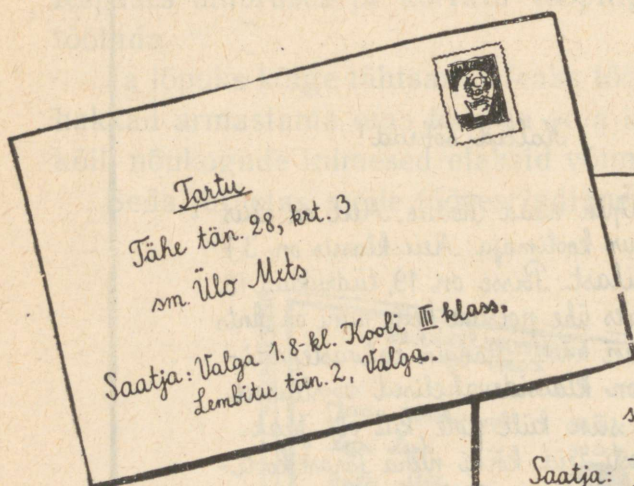 Tartu
Tähe tän. 28, krt. 3
sm. Ülo Mets
Saatja: Valga 1. 8-kl. Kooli III klass,
Lembitu tän. 2, Valga.
Saatja: